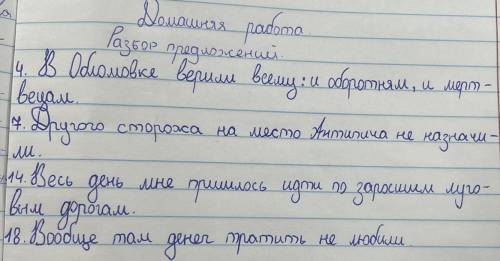 Домашняя работа.
Разбор предложений.
4. В Обломовке верили всему: и оборотням, и мерт-
вецам.
7. Другого сторожа на место Антипича не назначи-
ли.
14. Весь день мне пришлось идти по заросшим луго-
вым дорогам.
18. Вообще там денег тратить не любили